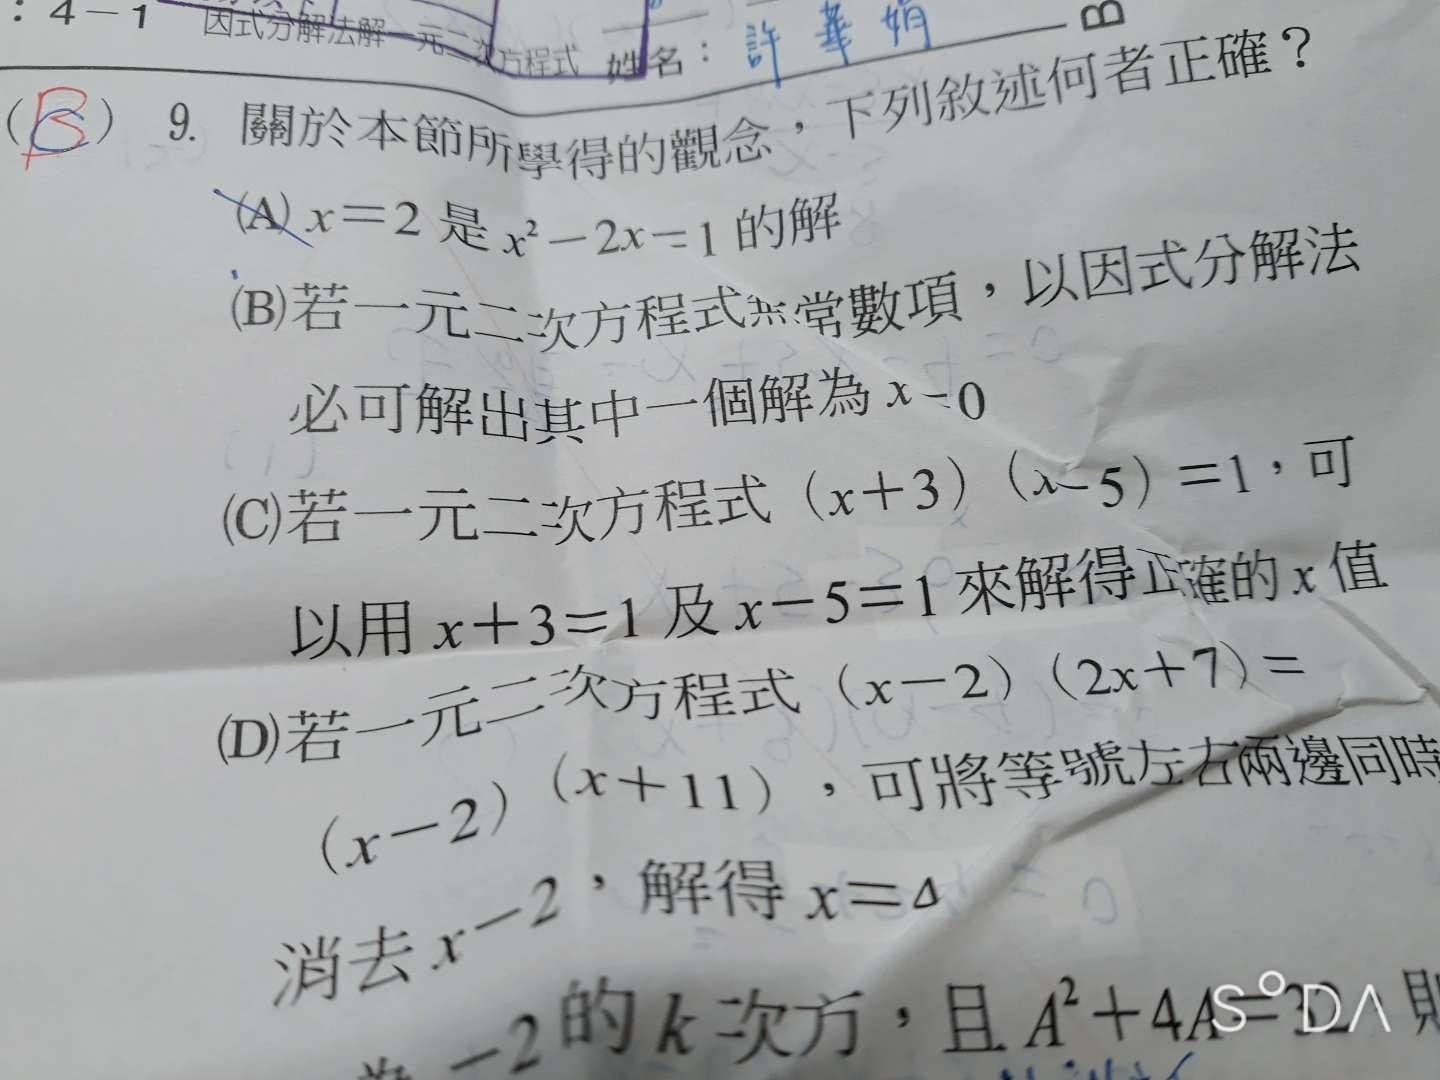 : 4-1 因式分解法解一元二次方程式 姓名: 許華娟 B
(B) 9. 關於本節所學得的觀念,下列敘述何者正確?
(A) x=2 是 x²-2x=1 的解
(B) 若一元二次方程式無常數項,以因式分解法
必可解出其中一個解為 x=0
(C) 若一元二次方程式 (x+3) (x-5) =1,可
以用 x+3=1 及 x-5=1 來解得正確的 x 值
(D) 若一元二次方程式 (x-2) (2x+7) =
(x-2) (x+11) ,可將等號左右兩邊同時
消去 x-2,解得 x=4
為 -2 的 k 次方,且 A²+4A=32 則
SODA